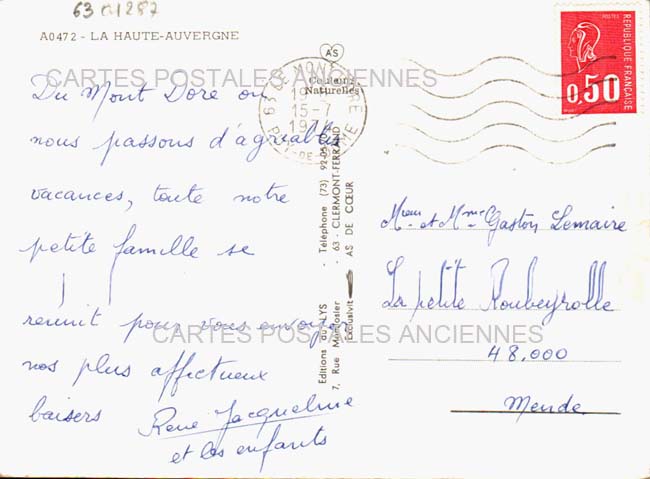 63 01287
A0472 - LA HAUTE-AUVERGNE
AS
Couleurs
Naturelles
POSTES
REPUBLIQUE FRANÇAISE
0,50
63 LE MONT-DORE
15-7
PUY-DE-DOME
CARTES POSTALES ANCIENNES
Du Mont Dore où
nous passons d'agréables
vacances, toute notre
petite famille se
reunit pour vous envoyer
nos plus affectueux
baisers Rene Jacqueline
et les enfants
CARTES POSTALES ANCIENNES
Editions du LYS - Téléphone (73) 92-05-
7, Rue Montlosier - 63 - CLERMONT-FERRAND
Exclusivité AS DE CŒUR
Mr et Mme Gaston Lemaire
La petite Roubeyrolle
48,000
Mende.